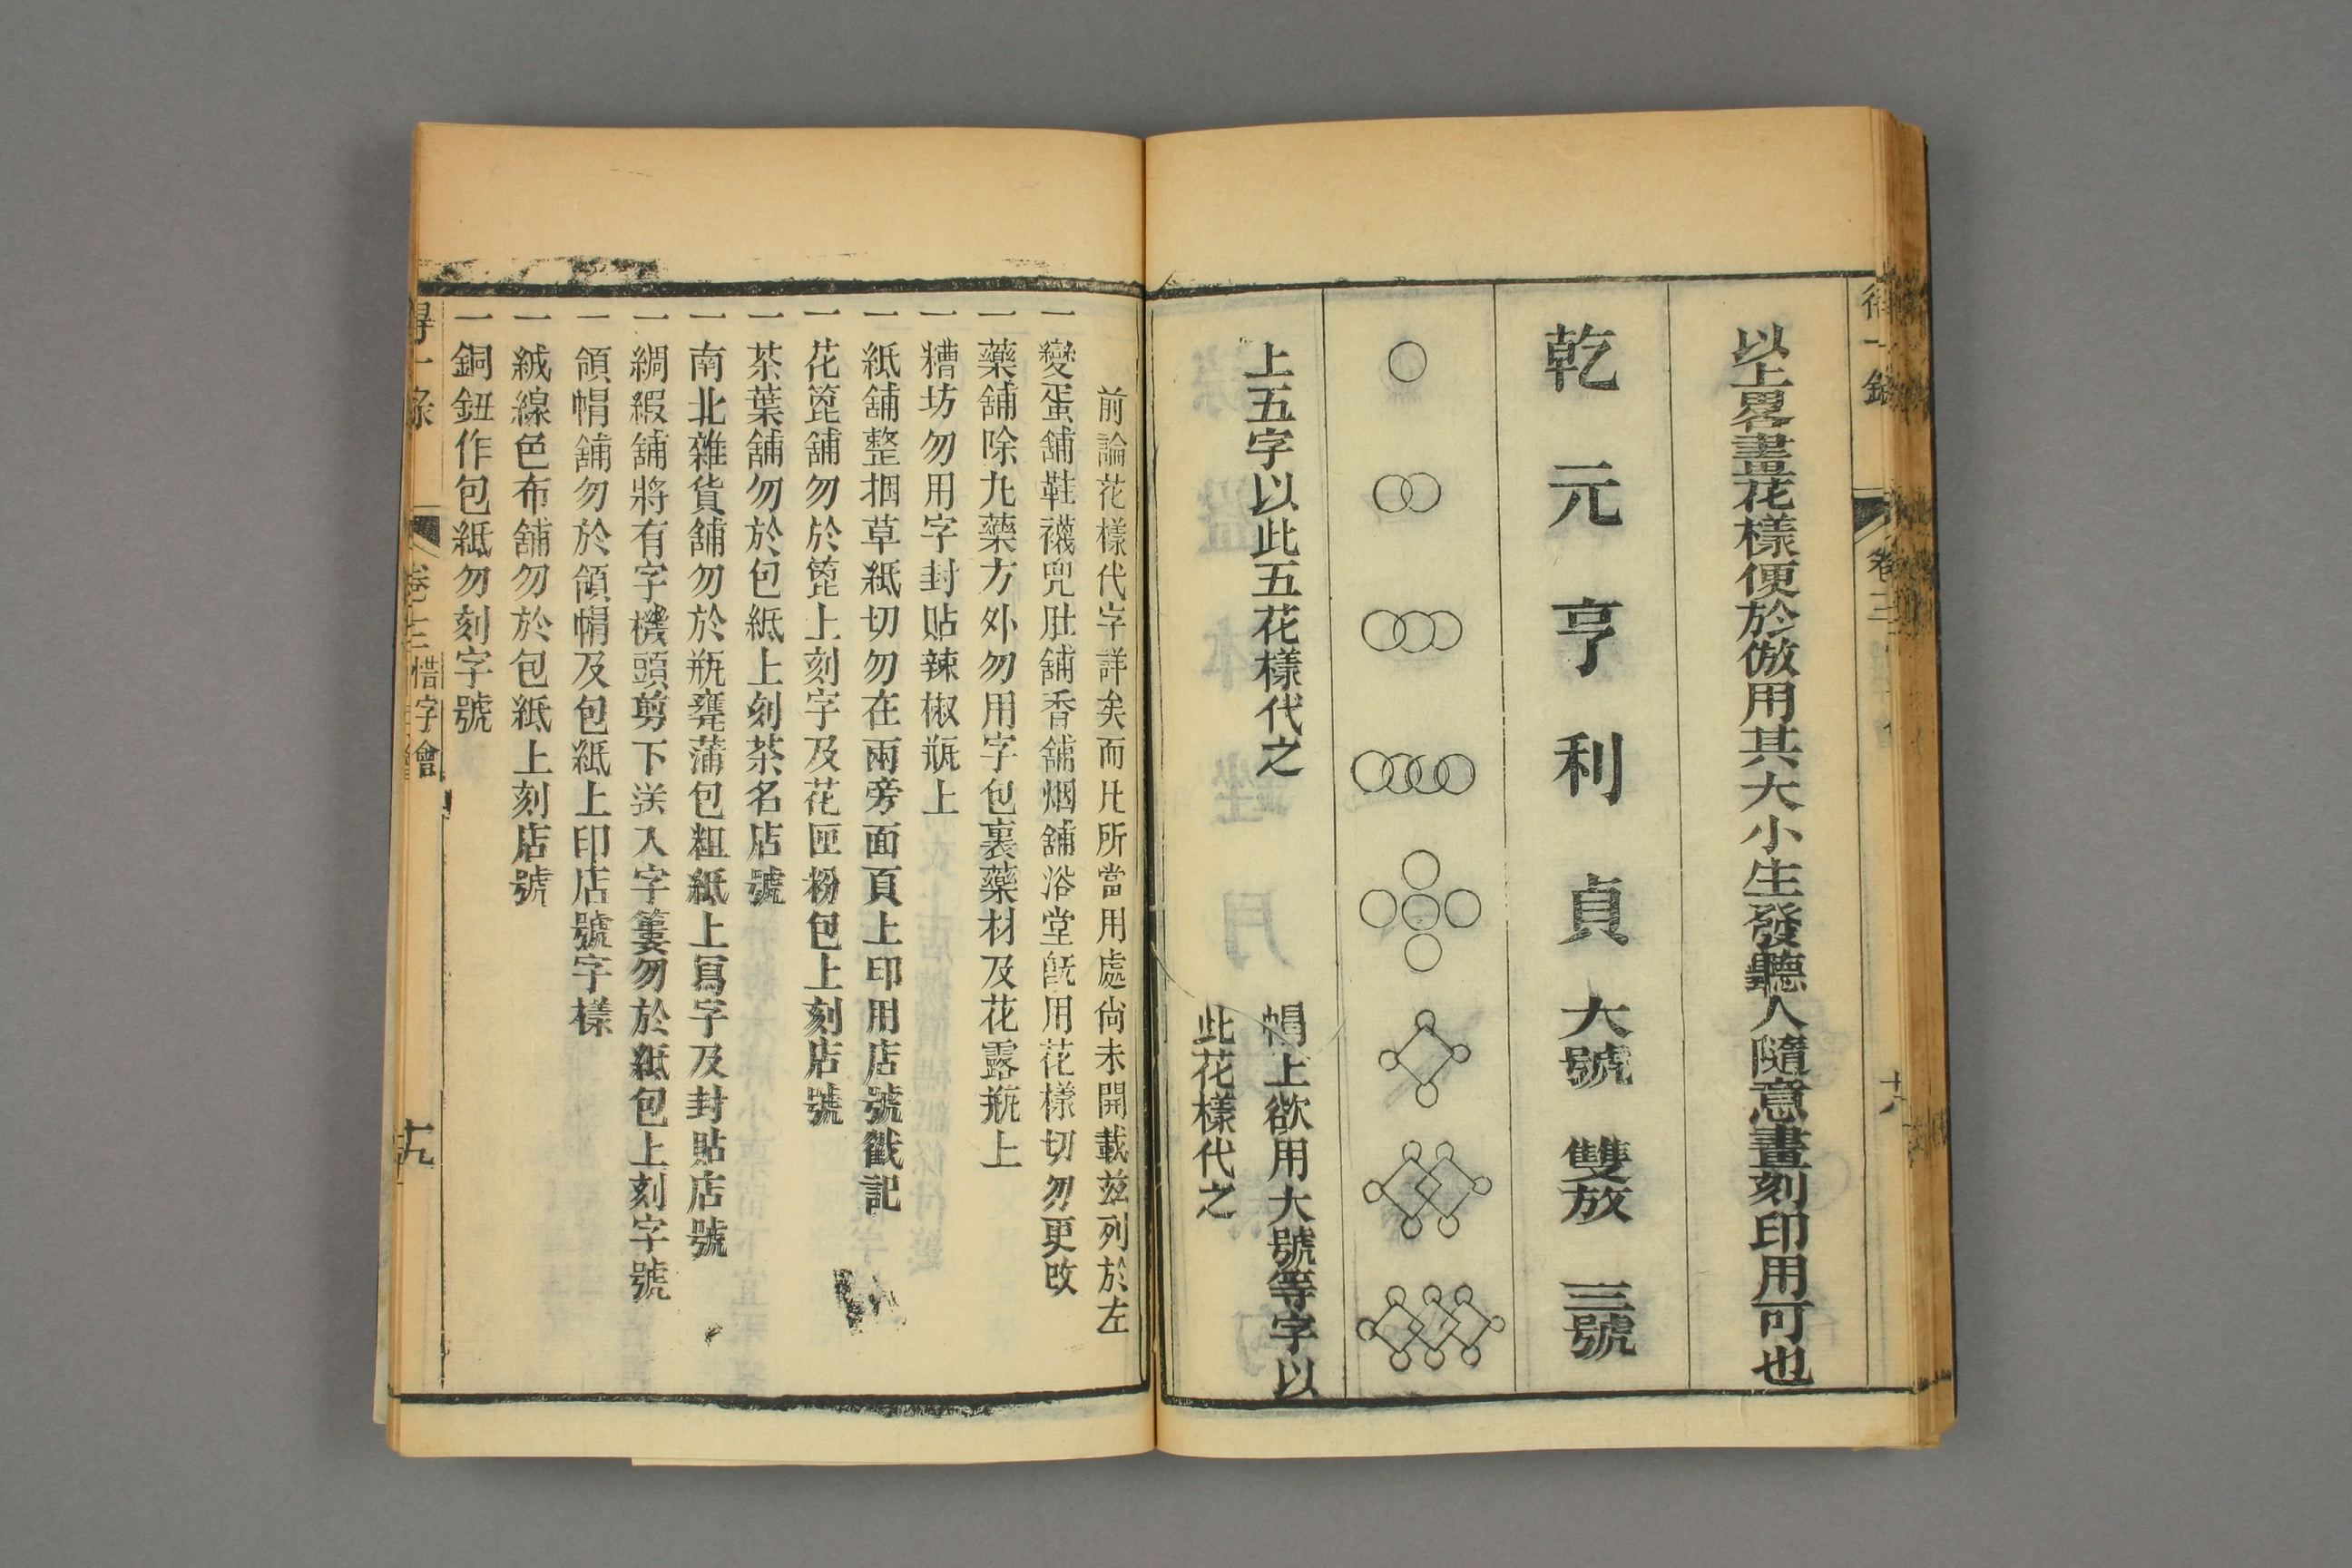 得一錄 卷三
以上畧畫花樣便於倣用其大小生發聽人隨意畫刻印用可也
乾 元 亨 利 貞 大號 雙放 三號
上五字以此五花樣代之
帽上欲用大號等字以
此花樣代之
前論花樣代字詳矣而比所當用處尙未開載兹列於左
一變蛋舖鞋襪兜肚舖香舖烟舖浴堂旣用花樣切勿更改
一藥舖除九藥方外勿用字包裏藥材及花露瓶上
一糟坊勿用字封貼辣椒瓶上
一紙舖整捆草紙切勿在兩旁面頁上印用店號戳記
一花篦舖勿於篦上刻字及花匣粉包上刻店號
一茶葉舖勿於包紙上刻茶名店號
一南北雜貨舖勿於瓶甕蒲包粗紙上寫字及封貼店號
一綢緞舖將有字機頭剪下送入字簍勿於紙包上刻字號
一領帽舖勿於領帽及包紙上印店號字樣
一絨線色布舖勿於包紙上刻店號
一銅鈕作包紙勿刻字號
得一錄 卷三 惜字會 十九